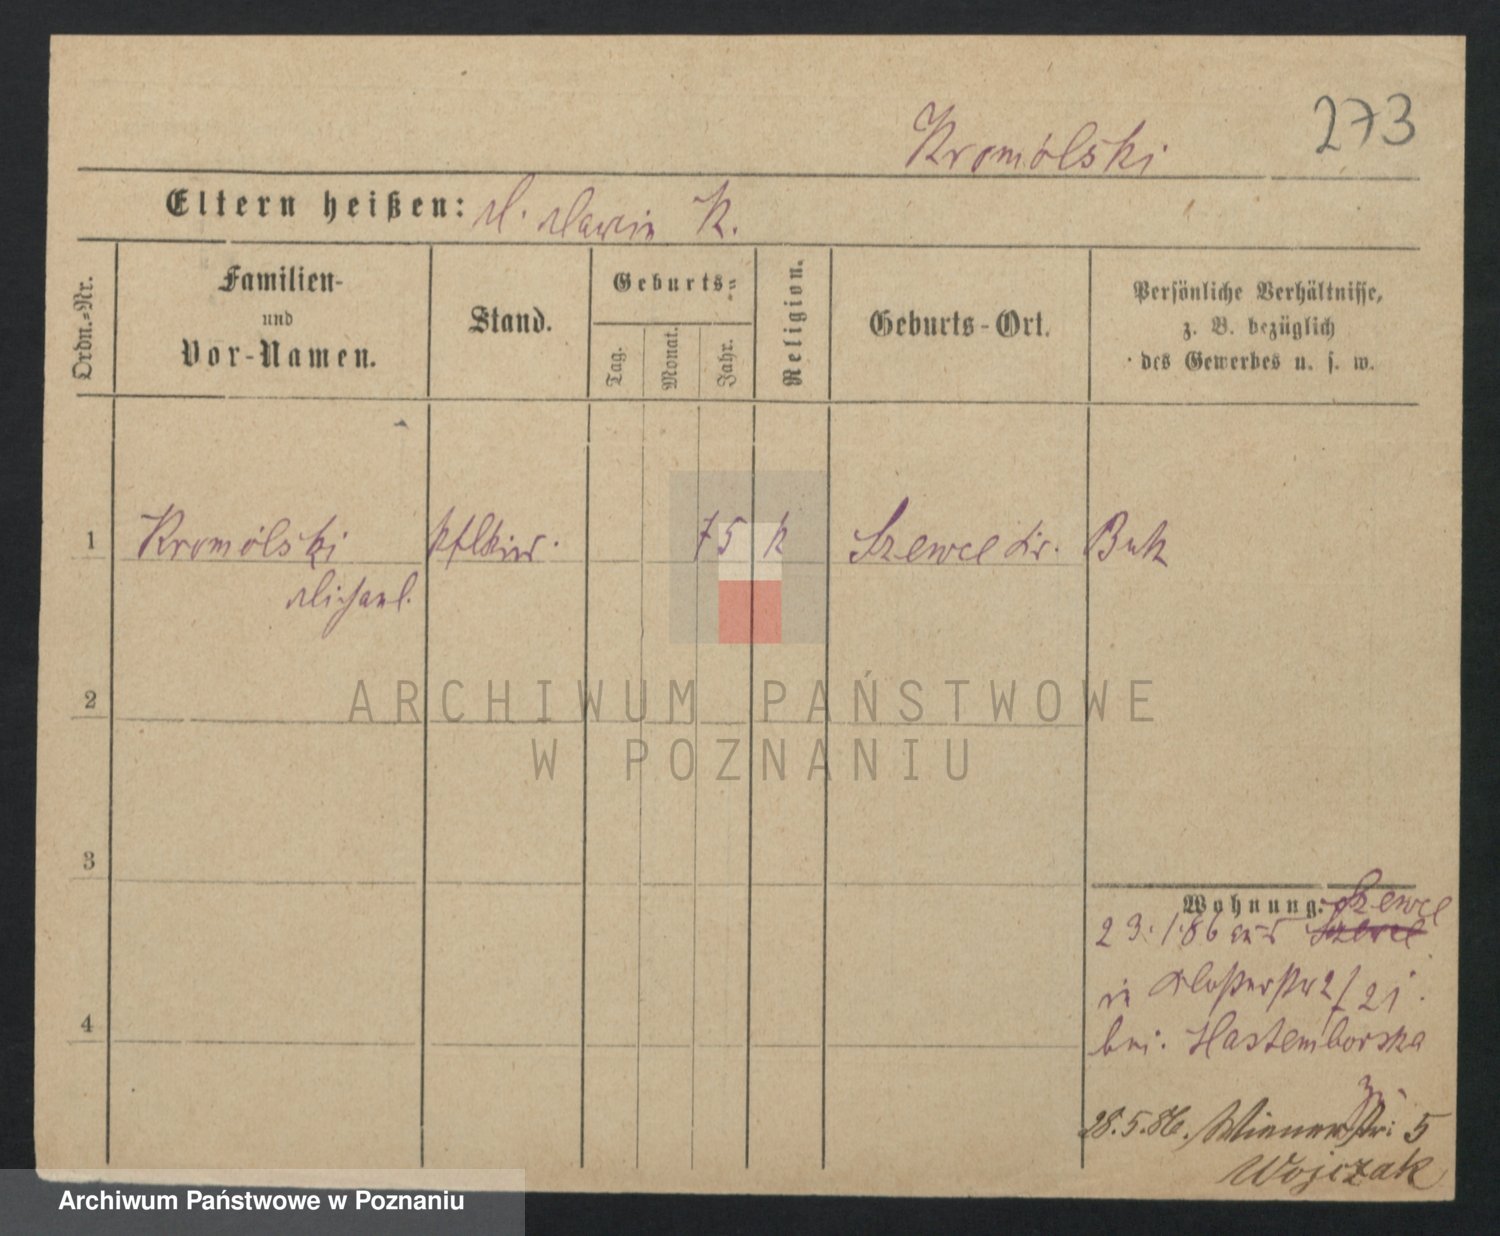 273
Kromólski
Eltern heißen: M. Marie K.
Ordn.=Nr.
Familien-
und
Vor-Namen.
Stand.
Geburts=
Tag.
Monat.
Jahr.
Religion.
Geburts-Ort.
Persönliche Verhältnisse,
z. B. bezüglich
des Gewerbes u. s. w.
1 Kromólski 75 k Szewce Kr. Buk
Michael.
ARCHIWUM PAŃSTWOWE
W POZNANIU
2
3
4
Wohnung: Szewce
23.1.86 aus Szewce
in Klosterstr 21
bei: Hastemborska
28.5.86. Wienerstr: 5
Wojczak
Archiwum Państwowe w Poznaniu